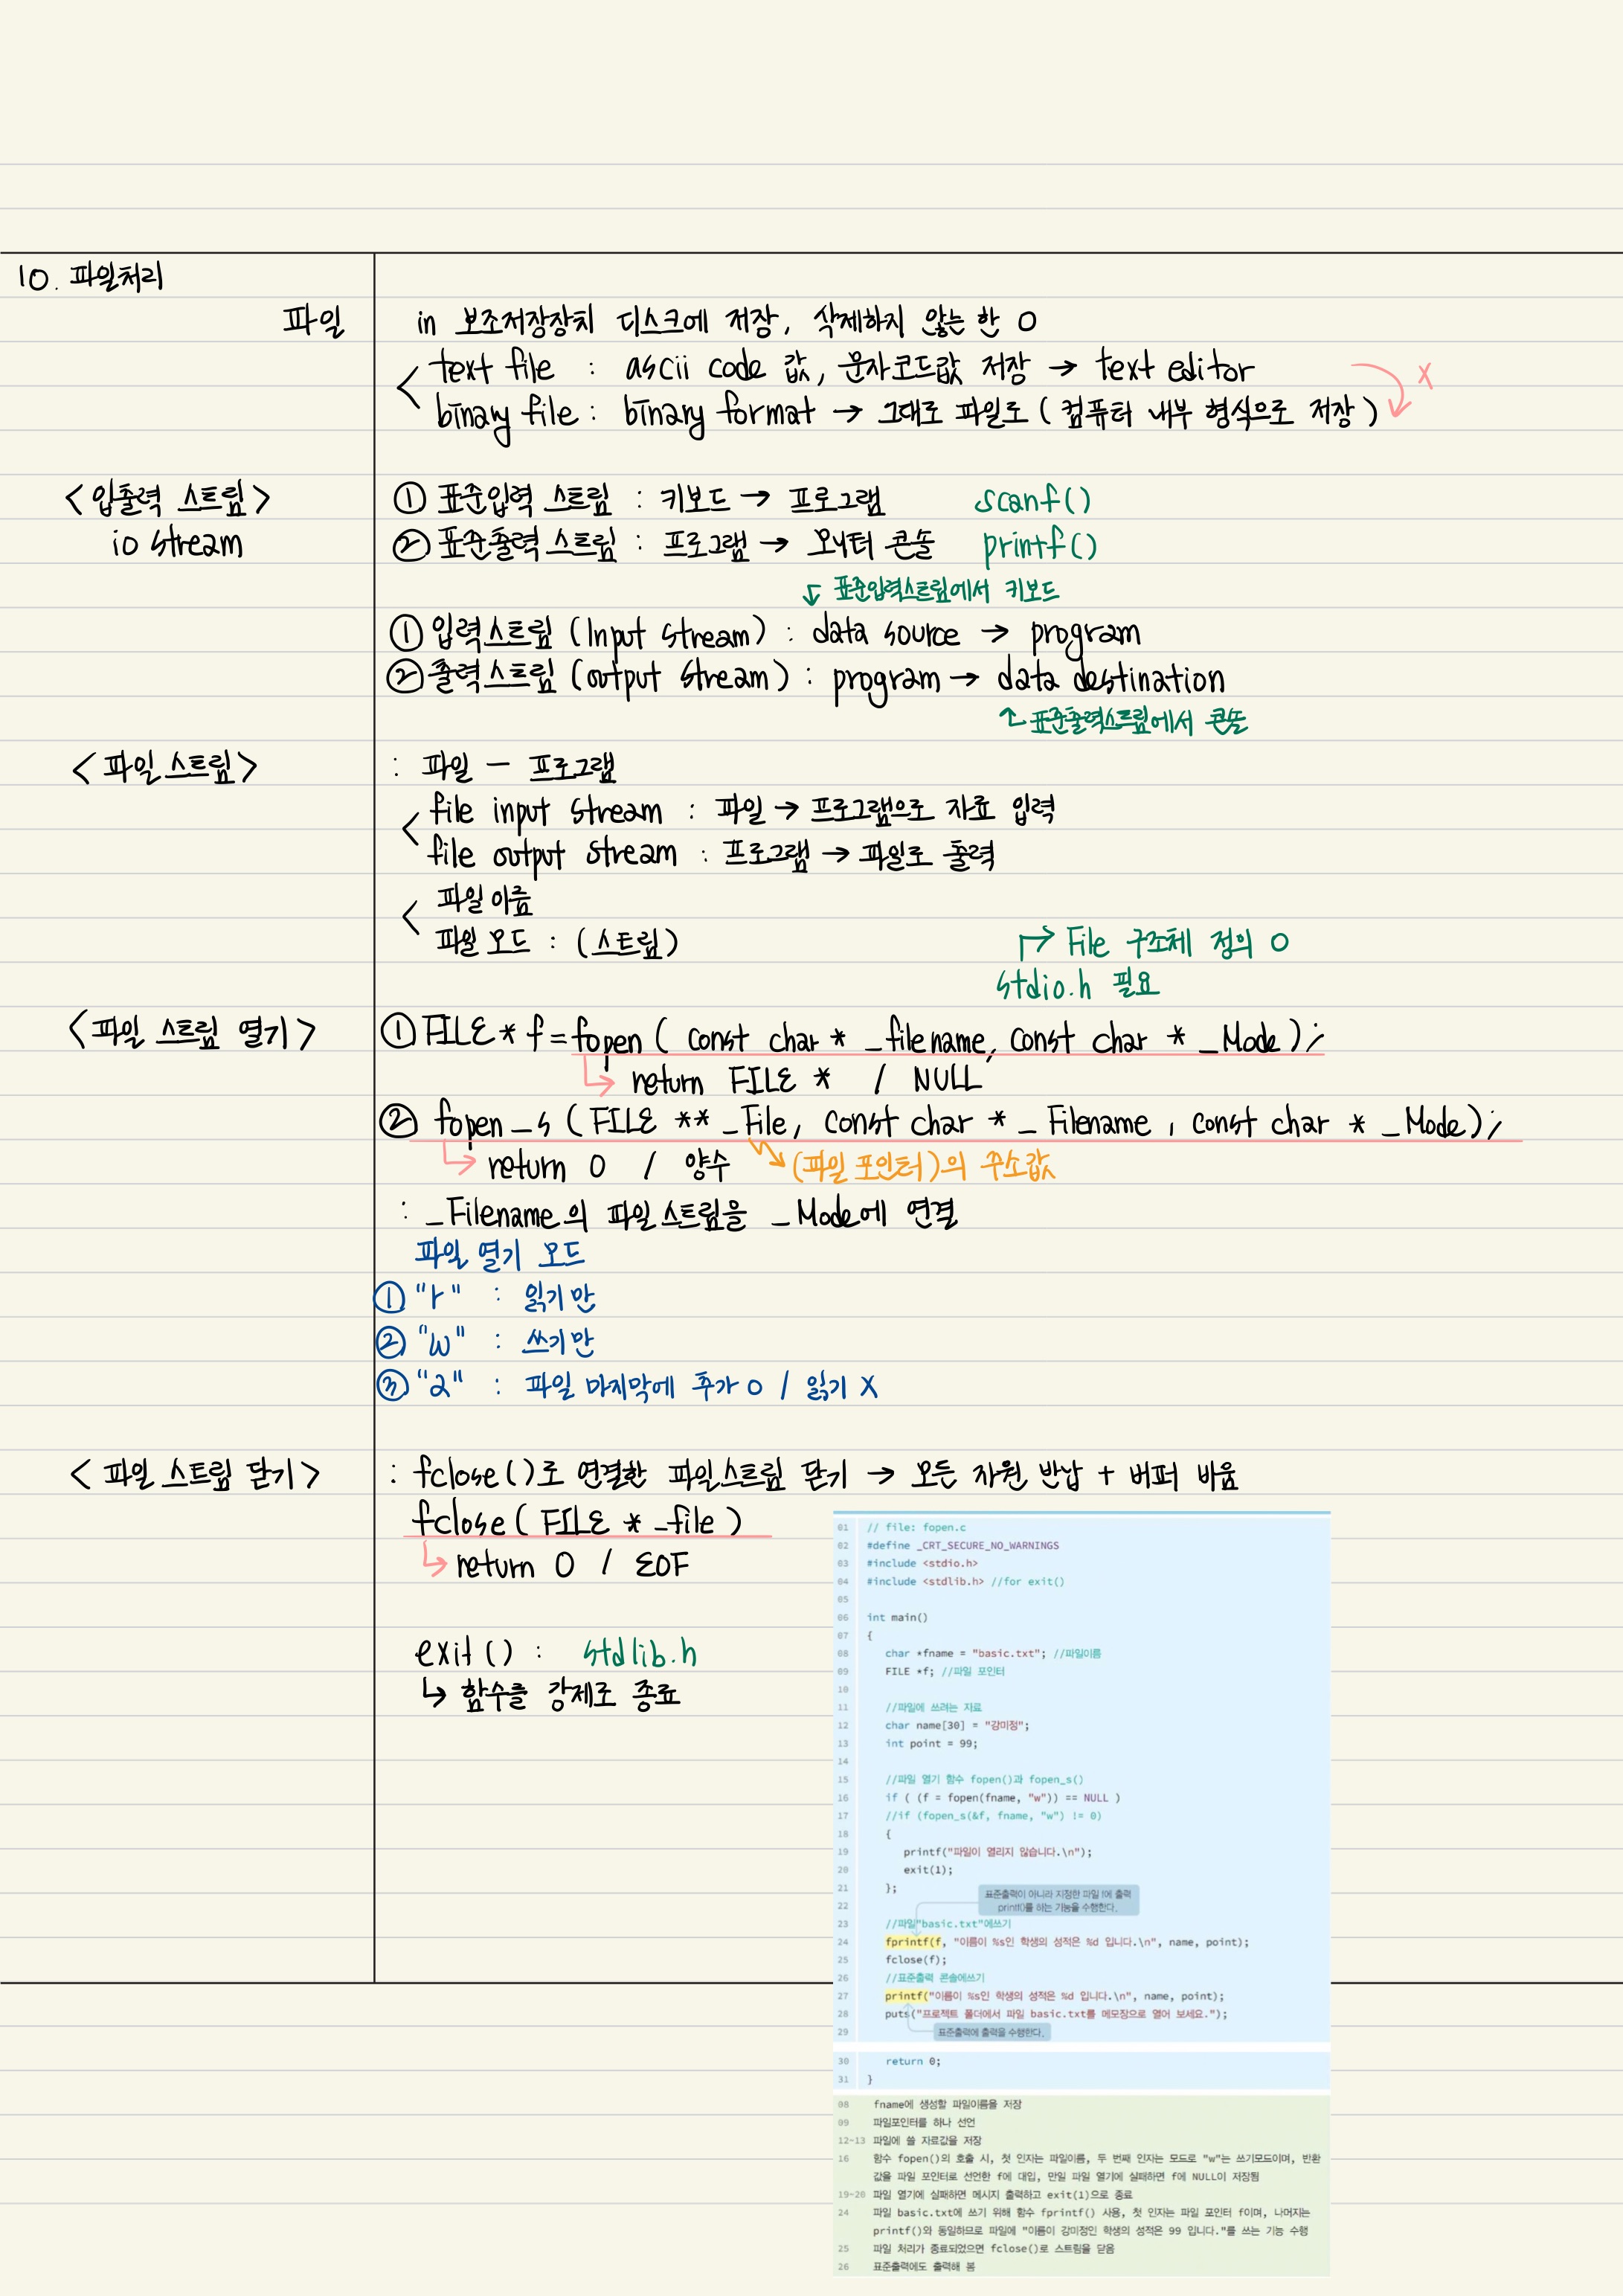 10. 파일처리
파일
in 보조저장장치 디스크에 저장, 삭제하지 않는 한 O
text file : ascii code 값, 문자코드값 저장 → text editor
X
binary file : binary format → 그대로 파일로 ( 컴퓨터 내부 형식으로 저장 )
< 입출력 스트림 >
io stream
① 표준입력 스트림 : 키보드 → 프로그램 scanf()
② 표준출력 스트림 : 프로그램 → 모니터 콘솔 printf()
표준입력스트림에서 키보드
① 입력스트림 (Input stream) : data source → program
② 출력스트림 (output stream) : program → data destination
표준출력스트림에서 콘솔
< 파일 스트림 >
: 파일 — 프로그램
file input stream : 파일 → 프로그램으로 자료 입력
file output stream : 프로그램 → 파일로 출력
파일 이름
파일 모드 : (스트림)
File 구조체 정의 O
stdio.h 필요
< 파일 스트림 열기 >
① FILE * f = fopen ( const char * _filename, const char * _Mode );
return FILE * / NULL
② fopen_s ( FILE ** _File, const char * _Filename , const char * _Mode);
return 0 / 양수 (파일 포인터)의 주소값
: _Filename의 파일스트림을 _Mode에 연결
파일 열기 모드
① "r" : 읽기만
② "w" : 쓰기만
③ "a" : 파일 마지막에 추가 O / 읽기 X
< 파일 스트림 닫기 >
: fclose()로 연결한 파일스트림 닫기 → 모든 자원 반납 + 버퍼 비움
fclose ( FILE * _file )
return 0 / EOF
exit() : stdlib.h
함수를 강제로 종료
01 // file: fopen.c
02 #define _CRT_SECURE_NO_WARNINGS
03 #include <stdio.h>
04 #include <stdlib.h> //for exit()
05
06 int main()
07 {
08 char *fname = "basic.txt"; //파일이름
09 FILE *f; //파일 포인터
10
11 //파일에 쓰려는 자료
12 char name[30] = "강미정";
13 int point = 99;
14
15 //파일 열기 함수 fopen()과 fopen_s()
16 if ( (f = fopen(fname, "w")) == NULL )
17 //if (fopen_s(&f, fname, "w") != 0)
18 {
19 printf("파일이 열리지 않습니다.\n");
20 exit(1);
21 };
표준출력이 아니라 지정한 파일 f에 출력
printf()를 하는 기능을 수행한다.
22
23 //파일"basic.txt"에쓰기
24 fprintf(f, "이름이 %s인 학생의 성적은 %d 입니다.\n", name, point);
25 fclose(f);
26 //표준출력 콘솔에쓰기
27 printf("이름이 %s인 학생의 성적은 %d 입니다.\n", name, point);
28 puts("프로젝트 폴더에서 파일 basic.txt를 메모장으로 열어 보세요.");
29 표준출력에 출력을 수행한다.
30 return 0;
31 }
08 fname에 생성할 파일이름을 저장
09 파일포인터를 하나 선언
12~13 파일에 쓸 자료값을 저장
16 함수 fopen()의 호출 시, 첫 인자는 파일이름, 두 번째 인자는 모드로 "w"는 쓰기모드이며, 반환
값을 파일 포인터로 선언한 f에 대입, 만일 파일 열기에 실패하면 f에 NULL이 저장됨
19~20 파일 열기에 실패하면 메시지 출력하고 exit(1)으로 종료
24 파일 basic.txt에 쓰기 위해 함수 fprintf() 사용, 첫 인자는 파일 포인터 f이며, 나머지는
printf()와 동일하므로 파일에 "이름이 강미정인 학생의 성적은 99 입니다."를 쓰는 기능 수행
25 파일 처리가 종료되었으면 fclose()로 스트림을 닫음
26 표준출력에도 출력해 봄